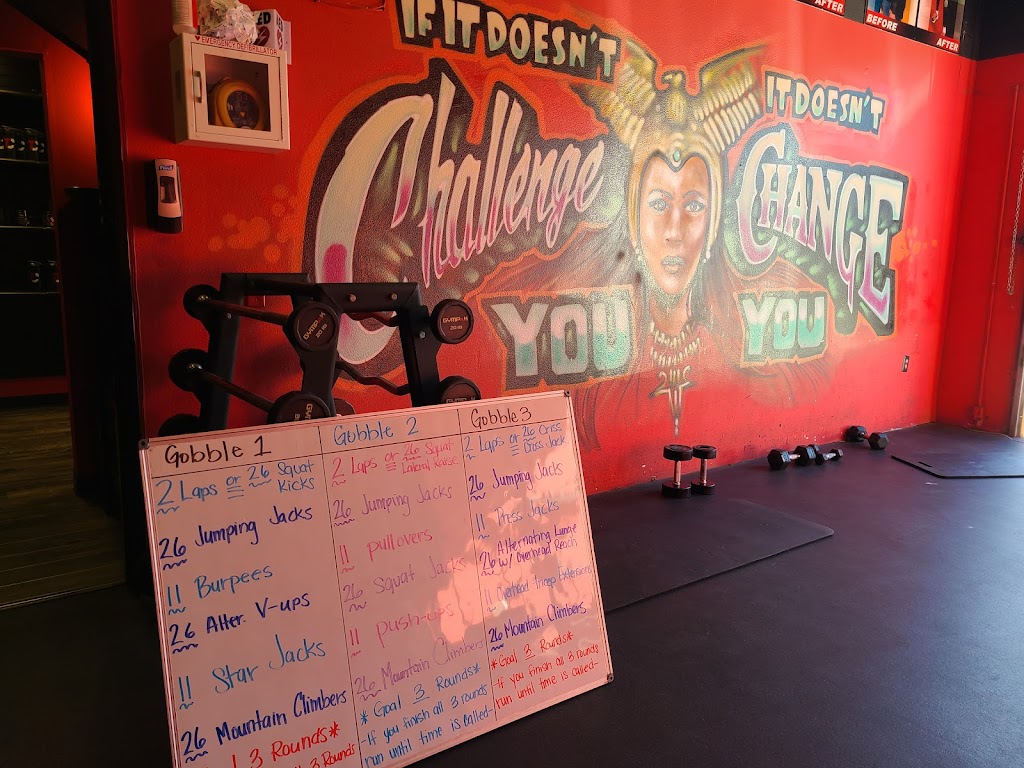 BEFORE
AFTER
AFTER
EMERGENCY DEFIBRILLATOR
IF IT DOESN'T
Challenge
YOU
IT DOESN'T
CHANGE
YOU
GYMP
20
Gobble 1
2 Laps or 26 Squat
Kicks
26 Jumping Jacks
11 Burpees
26 Alter. V-ups
11 Star Jacks
26 Mountain Climbers
3 Rounds*
3 Rounds
Gobble 2
2 Laps or 26 Squat
Lateral Raise
26 Jumping Jacks
11 pullovers
26 Squat Jacks
11 push-ups
26 Mountain Climbers
* Goal 3 Rounds*
-If you finish all 3 rounds
run until time is called-
Gobble 3
2 Laps or 26 Criss
Cross Jack
26 Jumping Jacks
11 Press Jacks
26 Alternating Lunge
w/ Overhead Reach
11 Overhead Tricep Extension
26 Mountain Climbers
*Goal 3 Rounds*
-If you finish all 3 rounds
run until time is called-